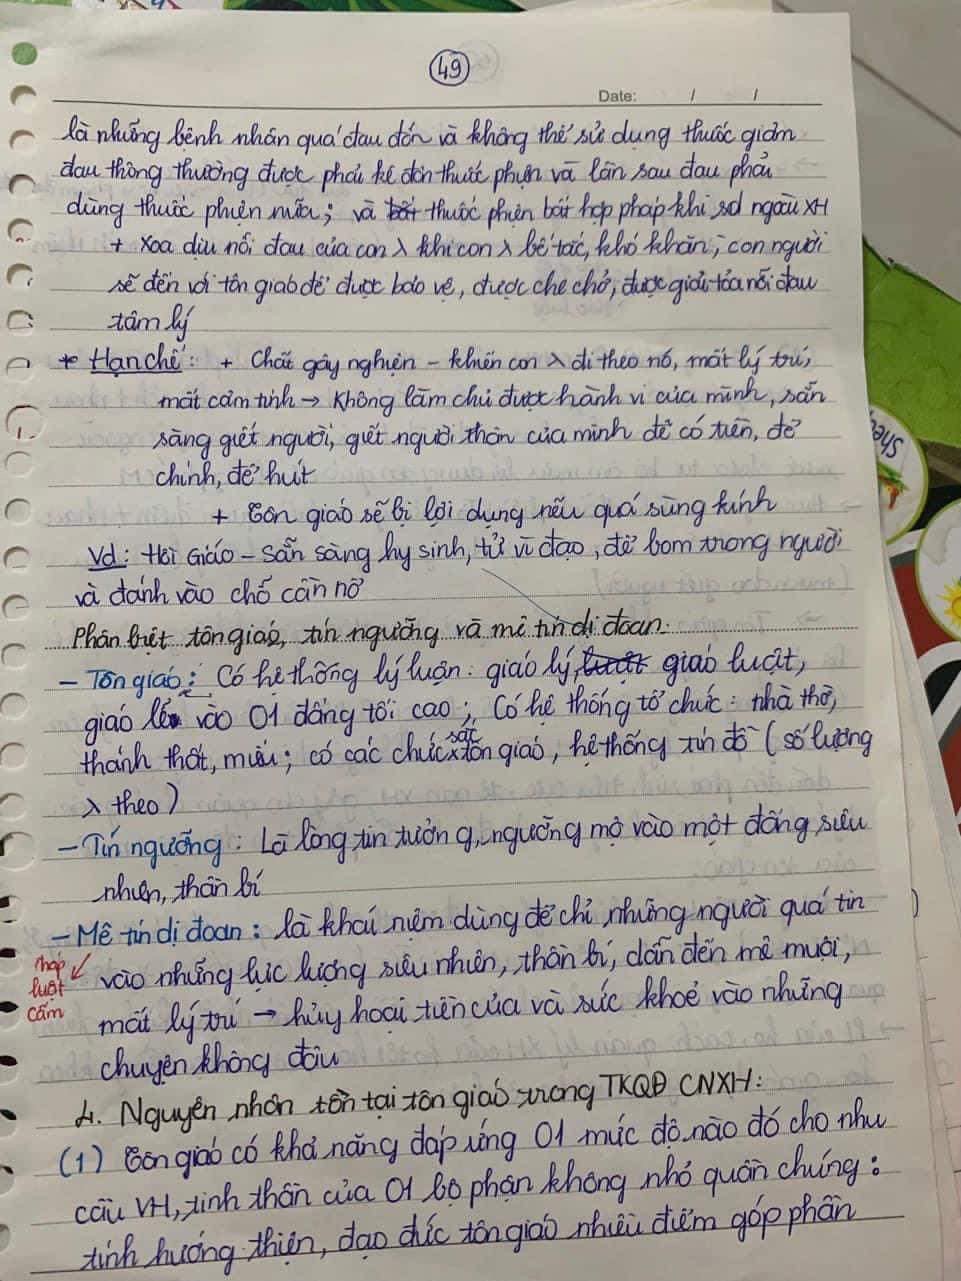 49
Date: / /
là những bệnh nhân quá đau đớn và không thể sử dụng thuốc giảm
đau thông thường được phải kê đơn thuốc phiện và lần sau đau phải
dùng thuốc phiện nữa; và bất thuốc phiện bất hợp pháp khi sd ngoài XH
+ Xoa dịu nỗi đau của con λ khi con λ bế tắc, khó khăn; con người
sẽ đến với tôn giáo để được bảo vệ, được che chở, được giải tỏa nỗi đau
tâm lý
* Hạn chế: + Chất gây nghiện - khiến con λ đi theo nó, mất lý trí,
mất cảm tính → Không làm chủ được hành vi của mình, sẵn
sàng giết người, giết người thân của mình để có tiền, để
chính, để hút
+ Tôn giáo sẽ bị lợi dụng nếu quá sùng kính
Vd: Hồi Giáo - Sẵn sàng hy sinh, tử vì đạo, để bom trong người
và đánh vào chỗ cần nổ
Phân biệt tôn giáo, tín ngưỡng và mê tín dị đoan.
- Tôn giáo: Có hệ thống lý luận: giáo lý, luật giáo luật,
giáo lễ vào 01 đấng tối cao; Có hệ thống tổ chức: nhà thờ,
thánh thất, miếu; có các chức sắc tôn giáo, hệ thống tín đồ (số lượng
λ theo)
- Tín ngưỡng: Là lòng tin tưởng, ngưỡng mộ vào một đấng siêu
nhiên, thần bí
- Mê tín dị đoan: là khái niệm dùng để chỉ những người quá tin
pháp luật cấm
vào những lực lượng siêu nhiên, thần bí, dẫn đến mê muội,
mất lý trí → hủy hoại tiền của và sức khoẻ vào những
chuyện không đâu
4. Nguyên nhân tồn tại tôn giáo trong TKQĐ CNXH:
(1) Tôn giáo có khả năng đáp ứng 01 mức độ nào đó cho nhu
cầu VH, tinh thần của 01 bộ phận không nhỏ quần chúng:
tính hướng thiện, đạo đức tôn giáo nhiều điểm góp phần